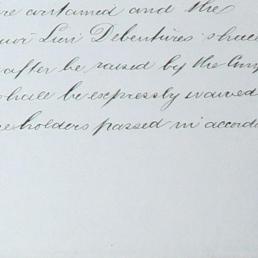 re contained and the
Debentures shall
after be raised by the Com
shall be expressly waived
eholders passed in accord